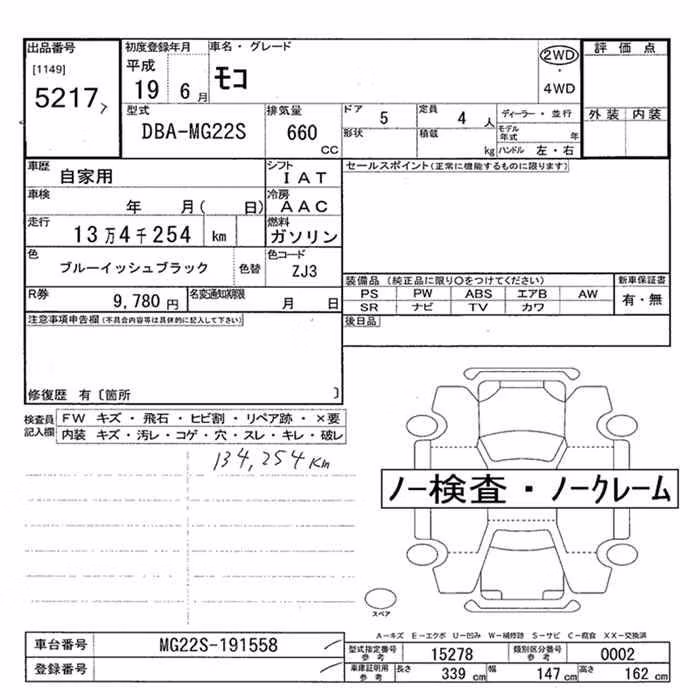 出品番号 初度登録年月 車名・グレード 2WD 評価点
[1149] 平成 モコ ・
5217 19 6月 4WD
型式 排気量 ドア 5 定員 4人 ディーラー・並行 外装 内装
DBA-MG22S 660 CC 形状 積載 kg モデル年式 年
ハンドル 左・右
車歴 自家用 シフト IAT セールスポイント(正常に機能するものに限ります)
車検 年 月( 日) 冷房 AAC
走行 13万4千254 km 燃料 ガソリン
色 ブルーイッシュブラック 色替 色コード ZJ3
装備品 (純正品に限り○をつけてください) 新車保証書
PS PW ABS エアB AW 有・無
SR ナビ TV カワ
R券 9,780円 名変通知期限 月 日
注意事項申告欄(不具合内容等は具体的に記入して下さい) 後日品
修復歴 有〔箇所 〕
検査員記入欄 FW キズ・飛石・ヒビ割・リペア跡・×要
内装 キズ・汚レ・コゲ・穴・スレ・キレ・破レ
134,254Km
ノー検査・ノークレーム
スペア
A-キズ E-エクボ U-凹み W-補修跡 S-サビ C-腐食 XX-交換済
車台番号 MG22S-191558 型式指定番号参考 15278 類別区分番号参考 0002
登録番号 車庫証明用参考 長さ 339cm 幅 147cm 高さ 162cm